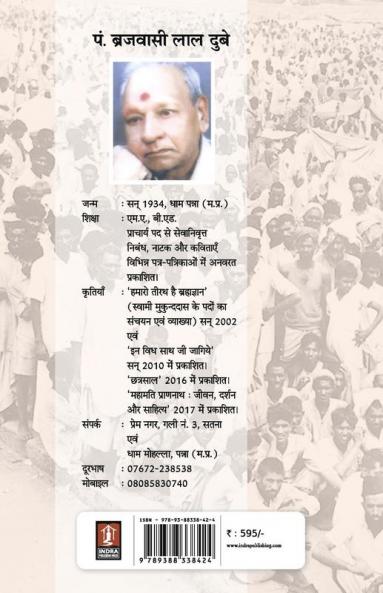 पं. ब्रजवासी लाल दुबे
जन्म : सन् 1934, धाम पन्ना (म.प्र.)
शिक्षा : एम.ए., बी.एड.
प्राचार्य पद से सेवानिवृत्त
निबंध, नाटक और कविताएँ
विभिन्न पत्र-पत्रिकाओं में अनवरत
प्रकाशित।
कृतियाँ : ‘हमारो तीरथ है ब्रह्मज्ञान’
(स्वामी मुकुन्ददास के पदों का
संचयन एवं व्याख्या) सन् 2002
एवं
‘इन विध साथ जी जागिये’
सन् 2010 में प्रकाशित।
‘छत्रसाल’ 2016 में प्रकाशित।
‘महामति प्राणनाथ : जीवन, दर्शन
और साहित्य’ 2017 में प्रकाशित।
संपर्क : प्रेम नगर, गली नं. 3, सतना
एवं
धाम मोहल्ला, पन्ना (म.प्र.)
दूरभाष : 07672-238538
मोबाइल : 08085830740
ISBN - 978-93-88338-42-4
9 789388 338424
INDRA
₹ : 595/-
www.indrapublishing.com